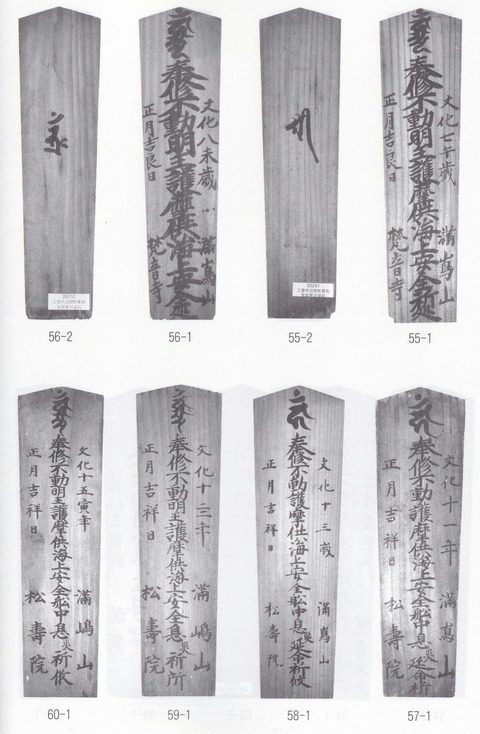 奉修不動明王護摩供海上安全祈
文化七午歳
満嶌山
正月吉良日
梵音寺
55-1
55-2
奉修不動明王護摩供海上安全
文化八未歳
満嶌山
正月吉良日
梵音寺
56-1
56-2
奉修不動護摩供海上安全舩中息災延命祈
文化十一年
満嶌山
正月吉祥日
松壽院
57-1
奉修不動護摩供海上安全舩中息災延命祈
文化十三歳
満嶌山
正月吉祥日
松壽院
58-1
奉修不動明王護摩供海上安全息災祈所
文化十三年
満嶋山
正月吉祥日
松壽院
59-1
奉修不動明王護摩供海上安全舩中息災祈
文化十五寅年
満嶋山
正月吉祥日
松壽院
60-1